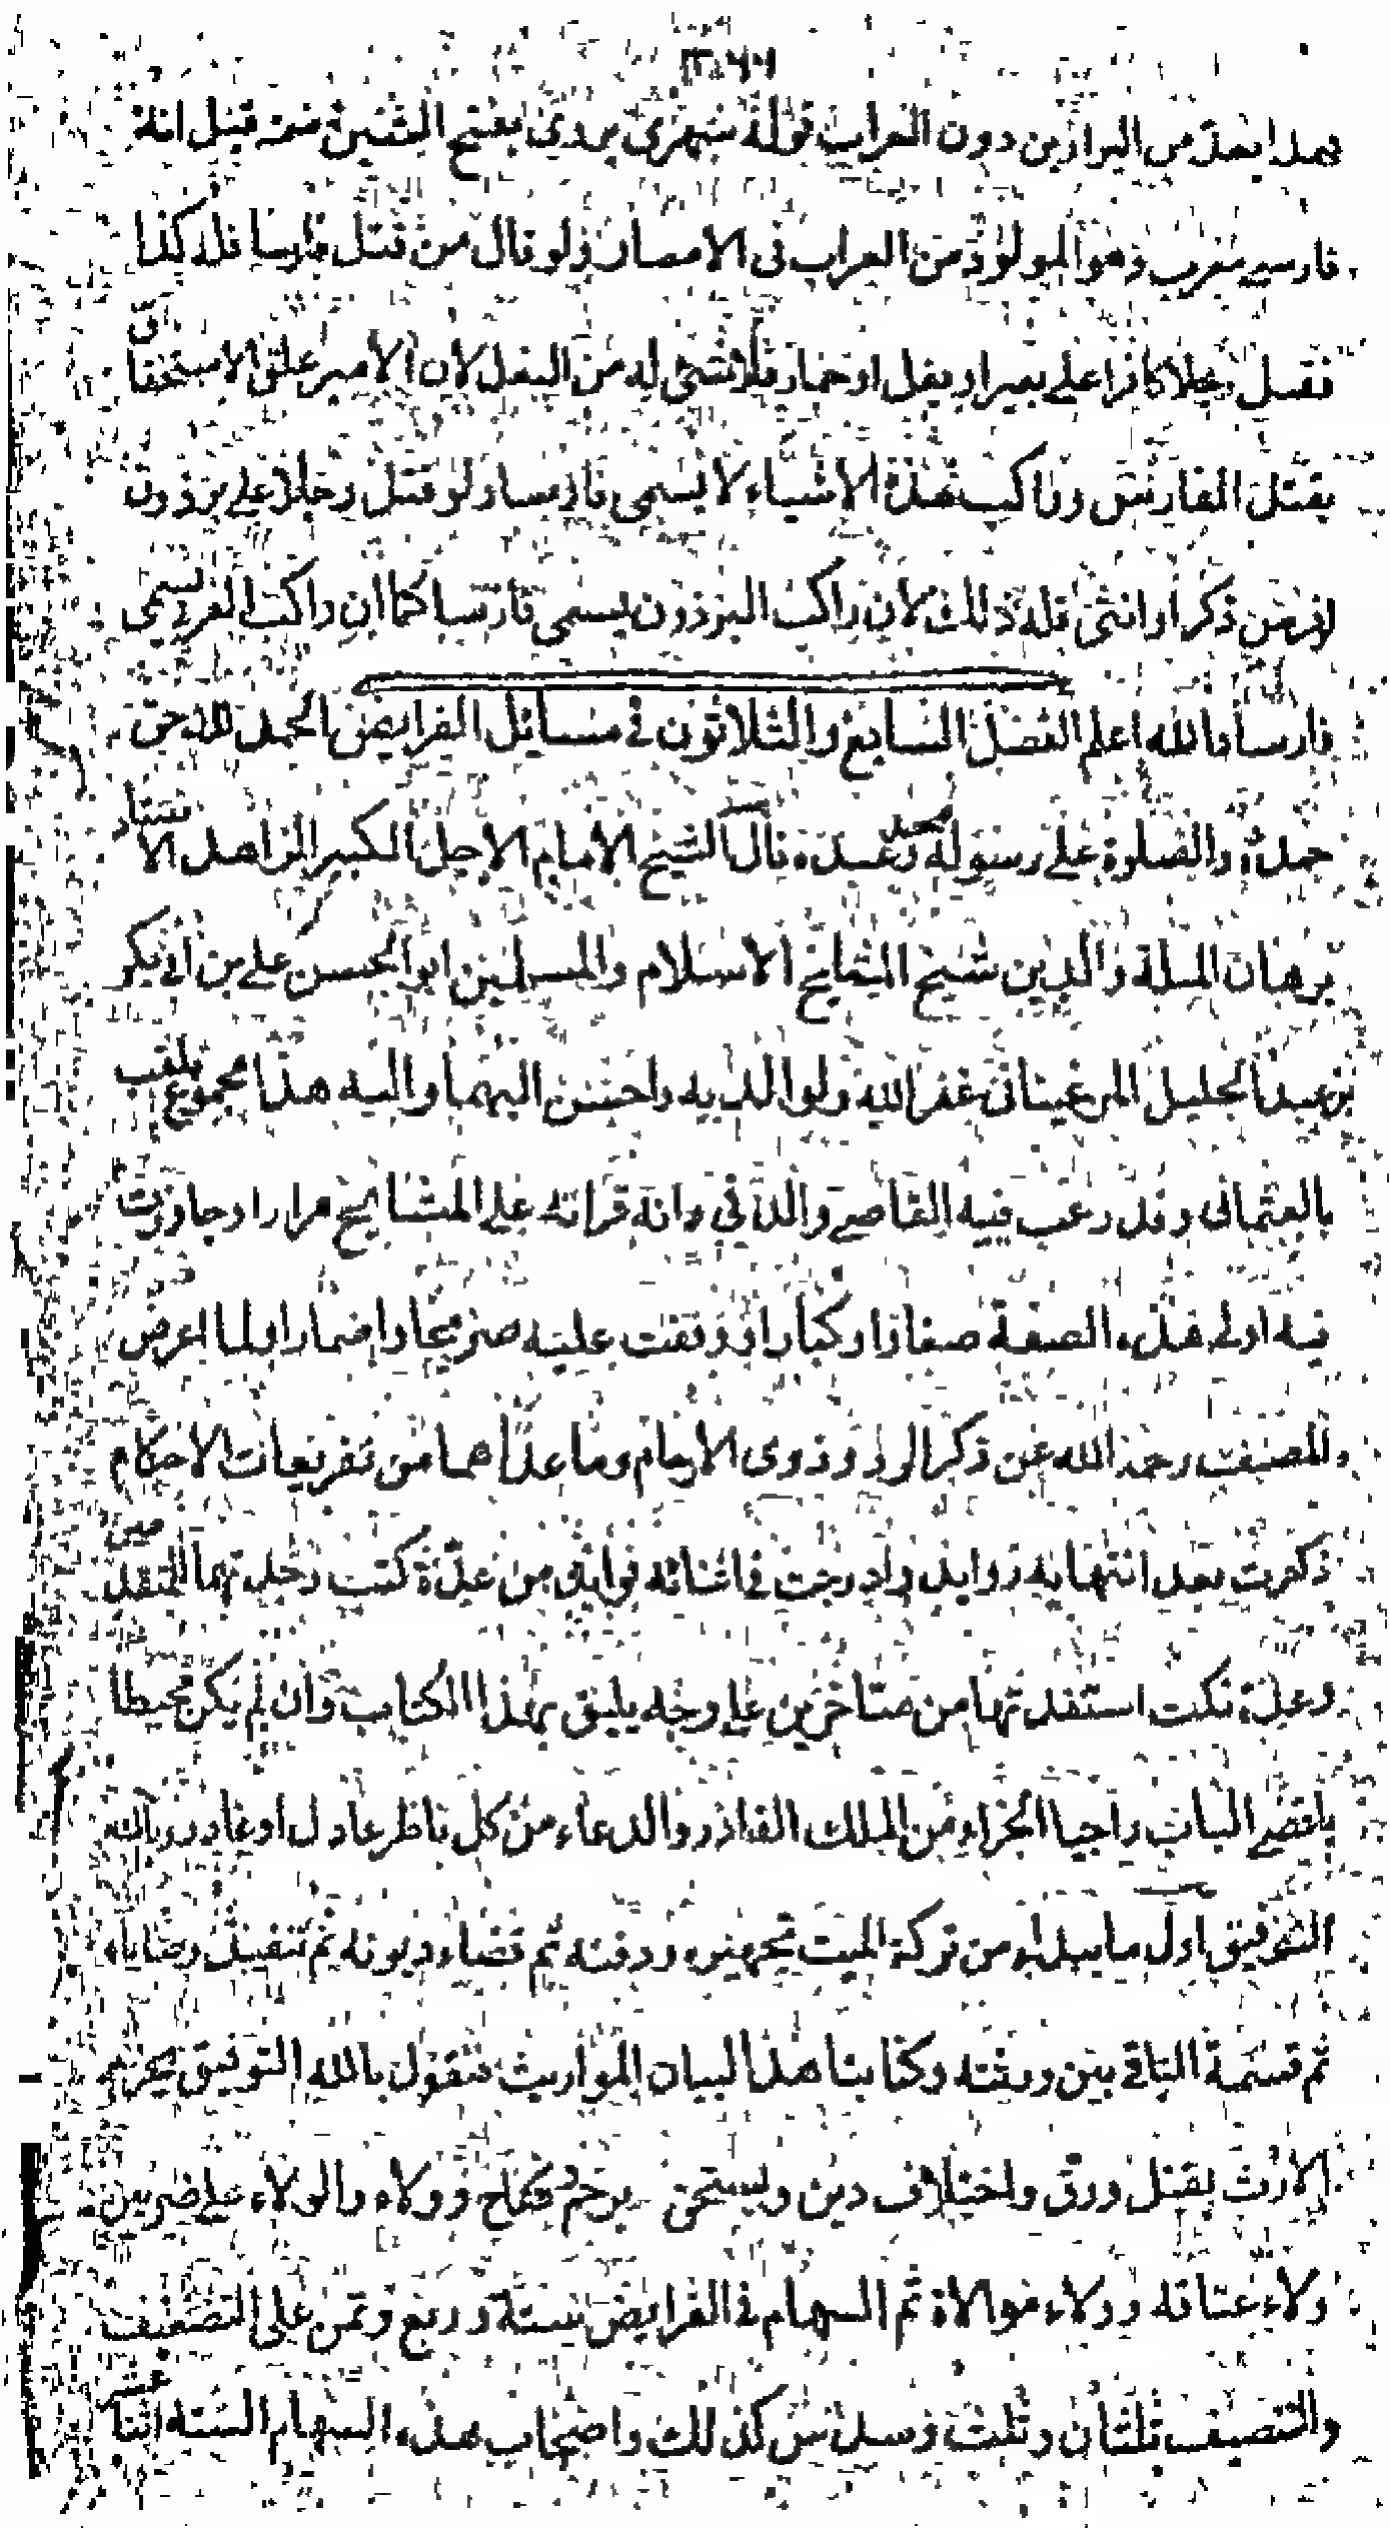 فهذا بعد من البراذين دون العراب قوله شهري بردي بفتح الشين ثمة قيل انه
فارسي معرب وهو المولود من العراب في الامصار ولو قال من قتل فارسا فله كذا
فقتل رجلا كافرا على بعير او بغل او حمار فلا شئ له من النفل لان الامير علق الاستحقاق
بقتل الفارس وراكب هذه الاشياء لا يسمى فارسا ولو قتل رجلا على برذون
او فرس ذكر او انثى فله ذلك لان راكب البرذون يسمى فارسا كما ان راكب الفرس يسمى
فارسا والله اعلم الفصل السابع والثلاثون في مسائل الفرايض الحمد لله حق
حمده والصلوة على رسوله محمد وعبده قال الشيخ الامام الاجل الكبير الزاهد الاستاد
برهان الملة والدين شيخ المشايخ الاسلام والمسلمين ابو الحسن على بن ابي بكر
بن عبد الجليل المرغيناني غفر الله ولوالديه واحسن اليهما واليه هذا مجموع يلقب
بالعثماني وقد رغب فيه القاصي والداني وانه قرأته على المشايخ مرارا وجاوزت
فيه اولى هذه الصنعة صغارا وكبارا ووقفت عليه صريحا واضمارا ولما اعرض
المصنف رحمه الله عن ذكر الرد وذوي الارحام وما عداهما من تفريعات الاحكام
ذكرت بعد انتهائه زوايد وادرجت في اثنائه فوايد من عدة كتب وجدتها للمتقدمين
وعدة نكت استفدتها من متاخرين على وجه يليق بهذا الكتاب وان لم يكن محيطا
باقصى الباب راجيا الجزاء من الملك القادر والدعاء من كل ناظر عادل او غادر وبالله
التوفيق اول ما يبدأ من تركة الميت تجهيزه ودفنه ثم قضاء ديونه ثم تنفيذ وصاياه
ثم قسمة الباقي بين ورثته وكتابنا هذا لبيان المواريث فنقول بالله التوفيق يحرم
الارث بقتل ورق واختلاف دين ويستحق برحم ونكاح وولاء والولاء على ضربين
ولاء عتاقه وولاء موالاة ثم السهام في الفرايض ستة وربع وثمن على التضعيف
والتنصيف ثلثان وثلث وسدس كذلك واصحاب هذه السهام الستة اثنا عشر